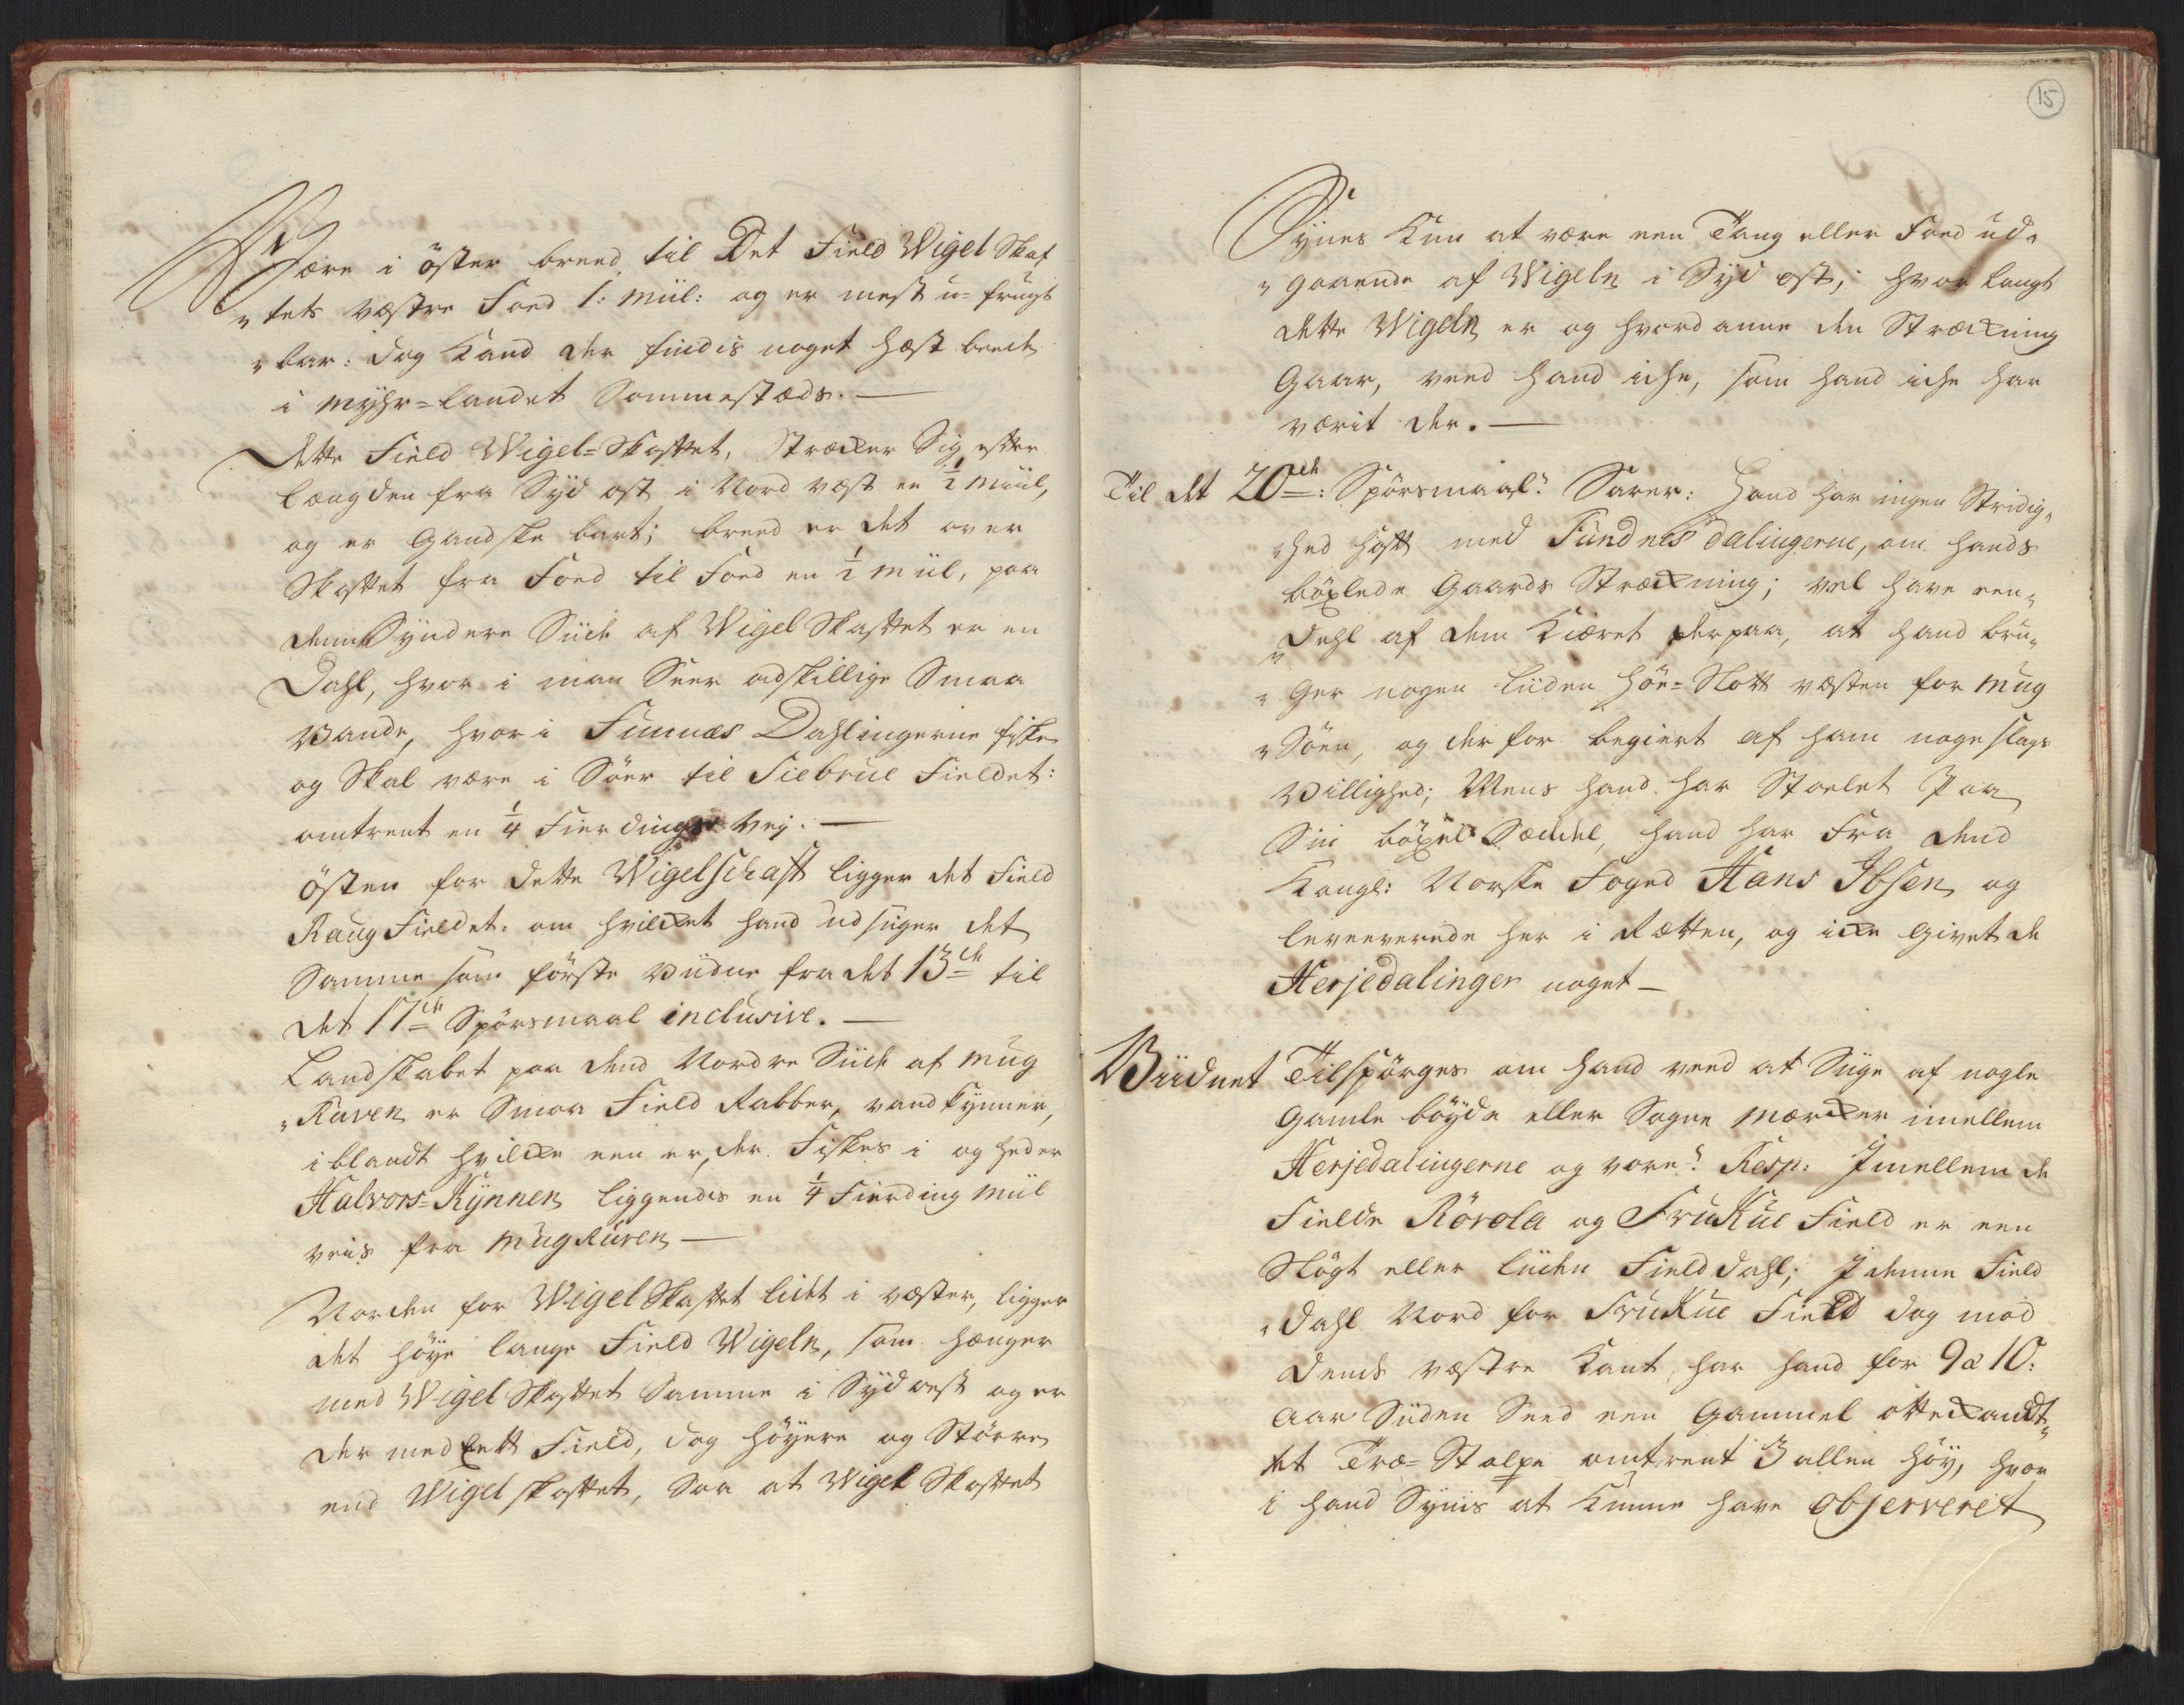 Være i öster breed til Det Field Wigel Skaf
„tets væstre Foed 1: Miil: og er mest u=frugt
„bar: dog Kand der findis noget Hæst beede
i Myhr=landet Sommestæds. —
Dette Field Wigel=Skaftet, Stræcker Sig efter
længden fra Syd ost i Nord væst en ½ Miil,
og er Gandske bart; breed er det over
Skaftet fra Foed til Foed en ½ Miil, paa
denne Syndere Siide af Wigel Skaftet er en
Dahl, hvor i man Seer adskillige Smaa
Vande, hvor i Funnæs Dahlingerne fiske
og Skal være i Söer til Siebrue Fieldet:
omtrent en ¼ Fierdings Vej. —
Östen for dette Wigelschaft ligger det Field
Raug Fieldet. om hvilcket hand udsiiger det
Samme som förste Viidne fra det 13de til
det 17de Spörsmaal inclusive. —
Landskabet paa dend Nordre Siide af Mug
„Ruven er Smaa Field Rabber, vand Kynner,
iblandt hvilcke een er, der Fiskes i og heder
Halvors=Kynnen liggendes en ¼ Fierding Miil
veis fra MugRuven —
Norden for Wigel Skaftet lidt i væster, ligger
det höye lange Field Wigeln, som hænger
med Wigel Skaftet Samme i Syd ost og er
der med Eett Field, dog höyere og Större
end Wigel skaftet, Saa at Wigel Skaftet
15
Synes Kun at være een Tang eller Foed ud„
„gaaende af Wigeln i Syd ost; hvor langt
dette Wigeln er og hvordanne den Stræckning
Gaar, veed hand iche, som hand iche har
værit der. —
Til det 20de: Spörsmaal? Svarer: Hand har ingen Stridig„
„hed hafft med Fundnesdalingerne, om hands
böxlede Gaards Stræckning; vel have een„
„Dehl af dem Kiæret derpaa, at hand bru„
„Ger nogen liiden Höe=Slott væsten for Mug
„Söen, og der for begiert af ham noge slags
Villighed; Mens hand har Stoelet Paa
Sin böxel Sædel, hand har Fra dend
Kongl: Norske Foged Hans Ibsen og
leveerede her i Rætten, og icke Givet de
Herjedalinger noget —
Viidnet Tilspörges om hand veed at Siige af nogle
Gamle böyde eller Sogne Mærcker imellem
Herjedalingerne og vore? Resp: Imellem de
Fielde Rövola og FruKue Field er een
Slögt eller liiden Field Dahl; I denne Field
„Dahl Nord for FruKue Field dog mod
Dends væstre Kant, har hand for 9 a 10:
Aar Siiden Seed een Gammel ottekandt„
et Træ=Stolpe omtrent 3 allen höy, hvor
i hand Synis at Kunne have observeret